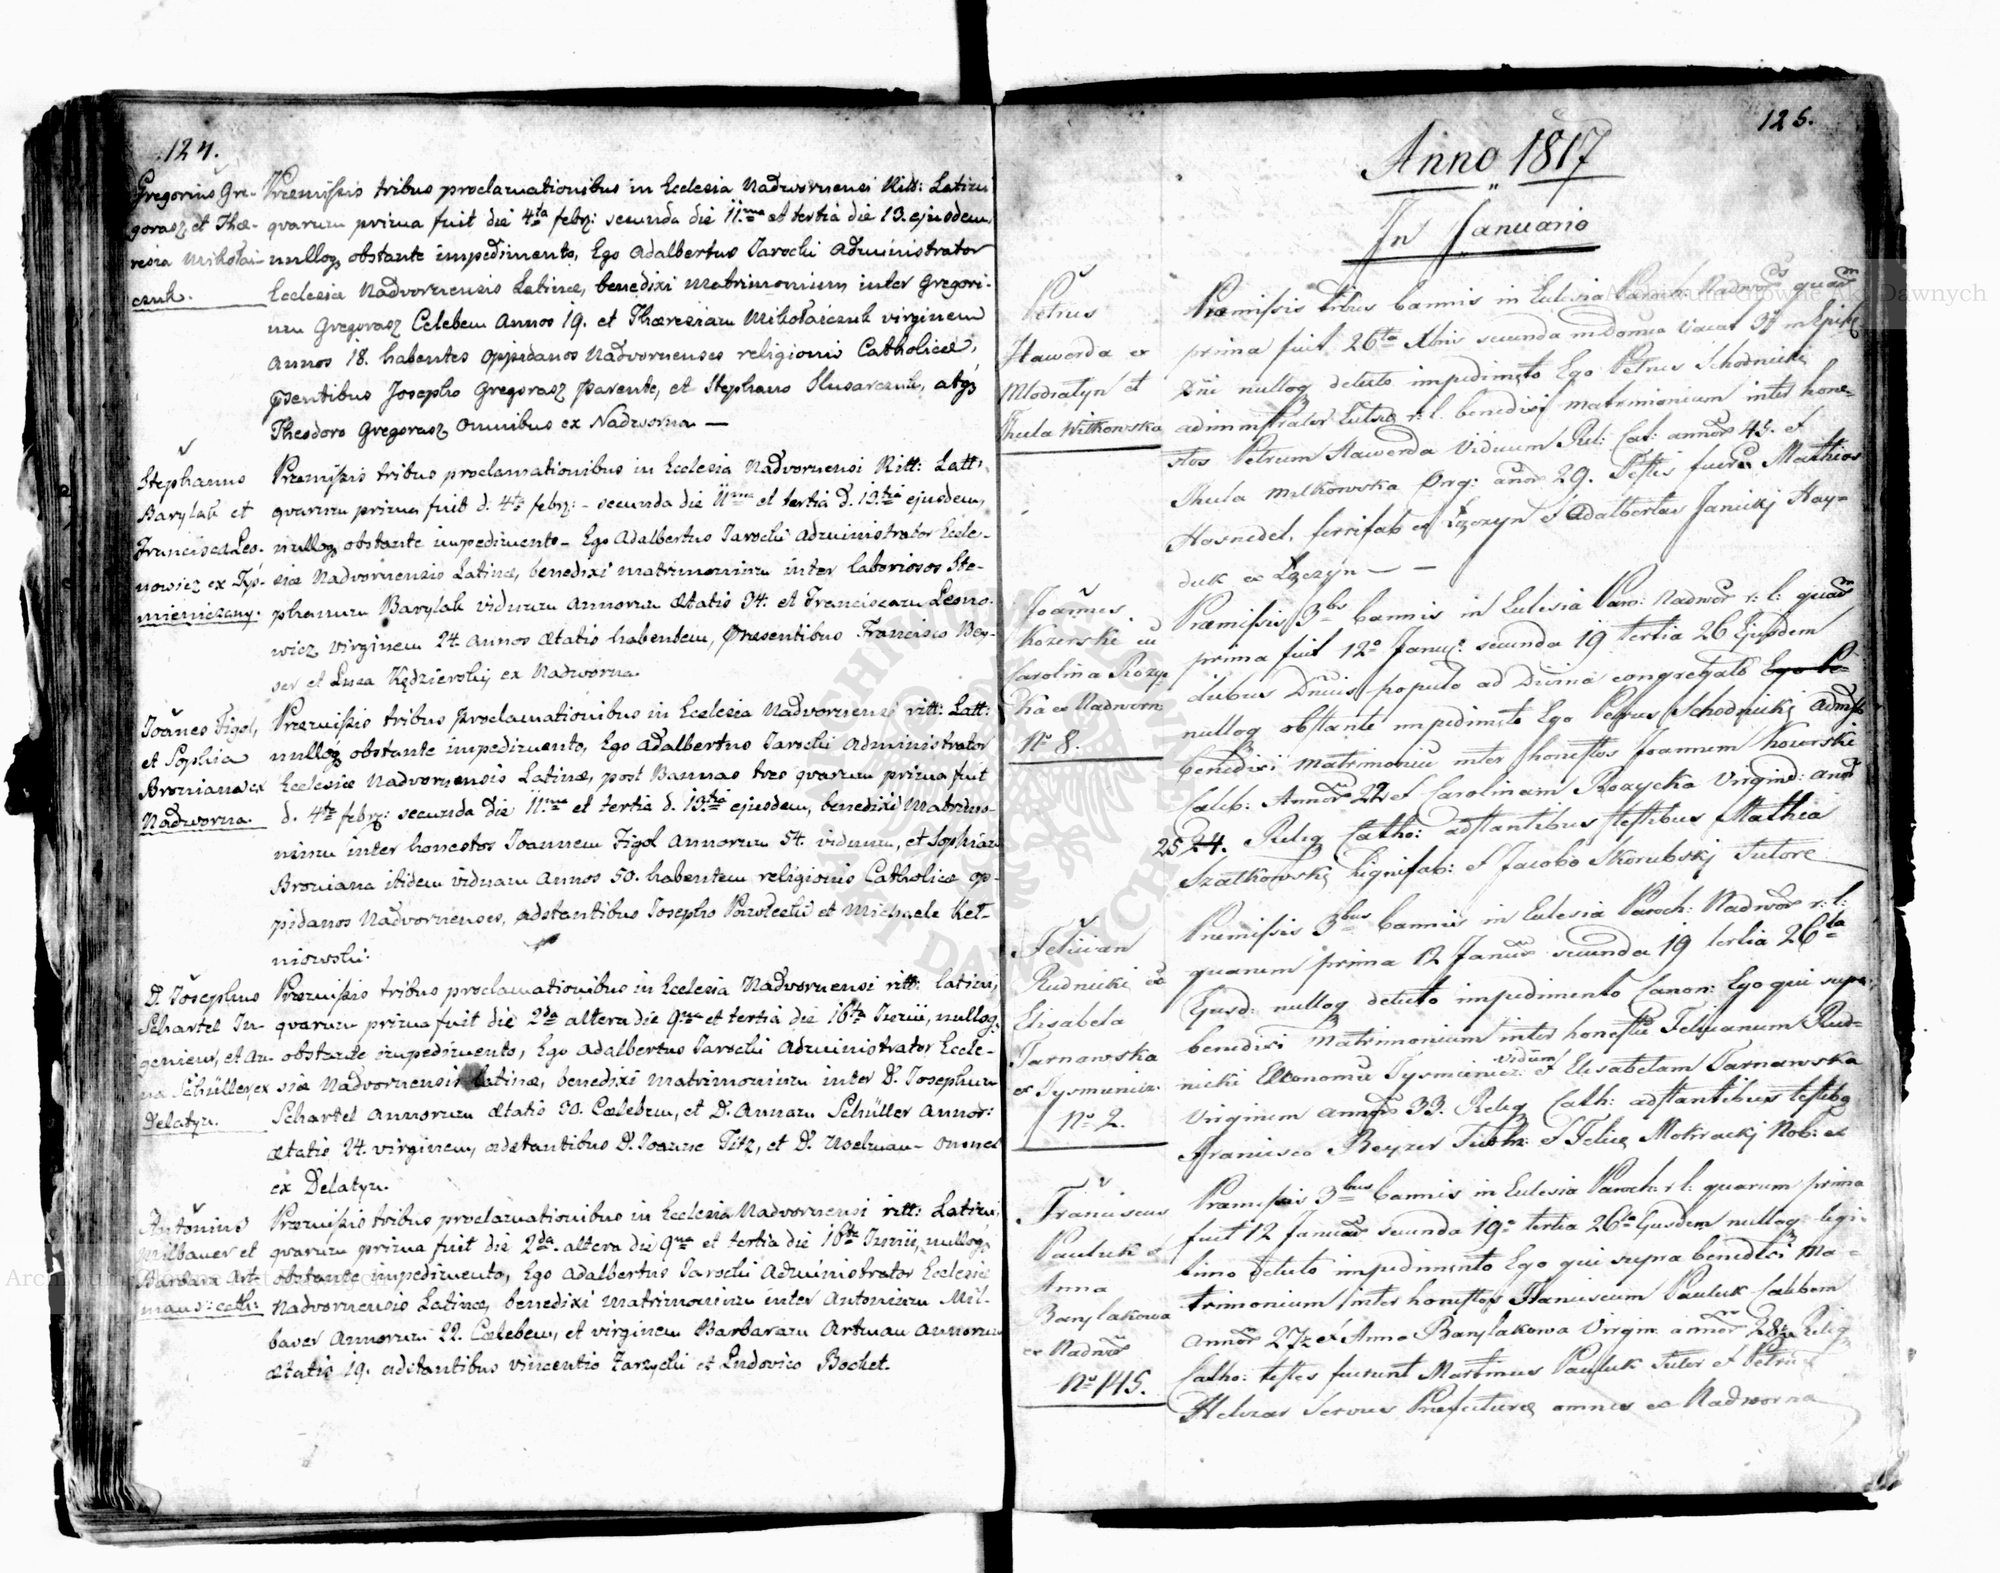 124.
Gregorius Gre-
gorasz et Thæ-
resia Mikołai-
czuk.
Præmissis tribus proclamationibus in Ecclesia Nadvornensi Ritt: Latini
qvarum prima fuit die 4ta febr: secunda die 11ma et tertia die 13. ejusdem,
nulloq obstante impedimento, Ego Adalbertus Jarocki Administrator
Ecclesiæ Nadvornensis Latinæ, benedixi matrimonium inter Gregori-
um Gregorasz Celebem Annos 19. et Thæresiam Mikołaiczuk virginem
Annos 18. habentes oppidanos Nadvornenses religionis Catholicæ,
psentibus Josepho Gregorasz parente, et Stephano Slusarczuk, atq
Theodoro Gregorasz omnibus ex Nadworna —
Stephanus
Barylak et
Francisca Les-
nowicz ex Tyś-
mieniczany.
Præmissis tribus proclamationibus in Ecclesia Nadvornensi Ritt: Latt:
qvarum prima fuit d. 4ta febr: - secunda die 11ma et tertia d. 13tia ejusdem,
nulloq obstante impedimento - Ego Adalbertus Jarocki Administrator Eccle-
siæ Nadvornensis Latinæ, benedixi matrimonium inter laboriosos Ste-
phanum Barylak viduum Annorum ætatis 34. et Franciscam Lesno-
wicz virginem 24. Annos ætatis habentem, præsentibus Francisco Bey-
ser et Luca Kędzierski, ex Nadworna.
Joānes Figol,
et Sophia
Broniana ex
Nadworna.
Præmissis tribus proclamationibus in Ecclesia Nadvornensi ritt: Latt:
nulloq obstante impedimento, Ego Adalbertus Jarocki Administrator
Ecclesiæ Nadvornensis Latinæ, post Bannas tres qvarum prima fuit
d. 4ta febr: secunda die 11ma et tertia d. 13tia ejusdem, benedixi Matrimo-
nium inter honestos Joannem Figol Annorum 54. viduum, et Sophiam
Broniana itidem viduam Annos 50. habentem religionis Catholicæ op-
pidanos Nadvornenses, adstantibus Josepho Pawłecki et Michaele Ket-
niowski.
D. Josephus
Schartel In-
genieur, et An-
na Schüller, ex
Delatyn.
Præmissis tribus proclamationibus in Ecclesia Nadvornensi ritt: latini,
qvarum prima fuit die 2da altera die 9na et tertia die 16ta Junii, nulloq
obstante impedimento, Ego Adalbertus Jarocki Administrator Eccle-
siæ Nadvornensis Latinæ, benedixi matrimonium inter D. Josephum
Schartel Annorum ætatis 30. Cælebem, et D. Annam Schüller Annor:
ætatis 24. virginem, adstantibus D. Joanne Titz, et D. Uselman - omnes
ex Delatyn.
Antonius
Milbauer et
Barbara Art-
man
Præmissis tribus proclamationibus in Ecclesia Nadvornensi ritt: Latini,
qvarum prima fuit die 2da. altera die 9na et tertia die 16ta Junii, nulloq
obstante impedimento, Ego Adalbertus Jarocki Administrator Ecclesiæ
Nadvornensis Latinæ, benedixi matrimonium inter Antonium Mil-
bauer Annorum 22. Cælebem, et virginem Barbaram Artman Annorum
ætatis 19. adstantibus vincentio Zarzycki et Ludovico Bochet.
125.
Anno 1817
In Januario
Petrus
Hawerda ex
Mlodiatyn et
Thecla Witkowska
Præmissis tribus bannis in Eclesia Paroch: Nadwor quar
prima fuit 26ta Xbris secunda
Dni nulloq detecto impedimēto Ego Petrus Schodnicki
administrator Eclesiæ r: l. benedixi matrimonium inter hone-
stos Petrum Hawerda Viduum Rel: Cat: annor 45. et
Thecla Milkowska Virg: anor 29. Testes fuere Mathias
Hosnedel, ferrifab ex Łęczyn et Adalbertus Janicki Hay-
duk ex Łęczyn — —
Joannes
Kozerski cū
Carolina Rozy-
cka ex Nadworn
No 8.
Præmissis 3bs bannis in Eclesia Paro: Nadwor r: l: quar
prima fuit 12a Januar: secunda 19 tertia 26 Ejusdem
diebus Dnicis populo ad Divina congregato Ego Pe-
nulloq obstante impedimēto Ego Petrus Schodnicki Admstr
benedixi matrimoniū inter honestos Joannem Kozerski
Cælib: Annor 22 et Carolinam Rozycka Virgind: anor
25 24. Relig Catho: adstantibus testibus Mathia
Szatkowski lignifab: et Jacobo Skorubski Sutore
Felician
Rudnicki et
Elisabeta
Tarnawska
ex Tysmienicz.
No 2.
Præmissis 3bus bannis in Eclesia Paroch: Nadwor r: l:
quarum prima 12 Januar secunda 19 tertia 26ta
Ejusd: nulloq detecto impedimento Canon: Ego qui supra
benedixi Matrimonium inter honestū Felicianum Rud-
nicki Ekonomū Tysmienicz: viduum et Elisabetam Tarnawska
Virginem annor 33. Relig Cath: adstantibus testibq
Francisco Beyzer et Felice Mokrzcki Nob: ex
Franciscus
Pauluk et
Anna
Barylakowa
ex Nadwor
No 145.
Præmissis 3bus bannis in Eclesia Paroch: r l: quarum prima
fuit 12 Januar secunda 19a tertia 26ta Ejusdem nulloq legi-
timo detecto impedimento Ego qui supra benedixi Ma-
trimonium inter honestos Franciscum Pauluk Cælibem
annor 27 et Anna Barylakowa Virgin annor 28 Relig
Catho: testes fuerunt Martinus Pauluk Sutor et Petrus
Servus Præfecturæ omnes ex Nadworna
Archiwum Główne Akt Dawnych